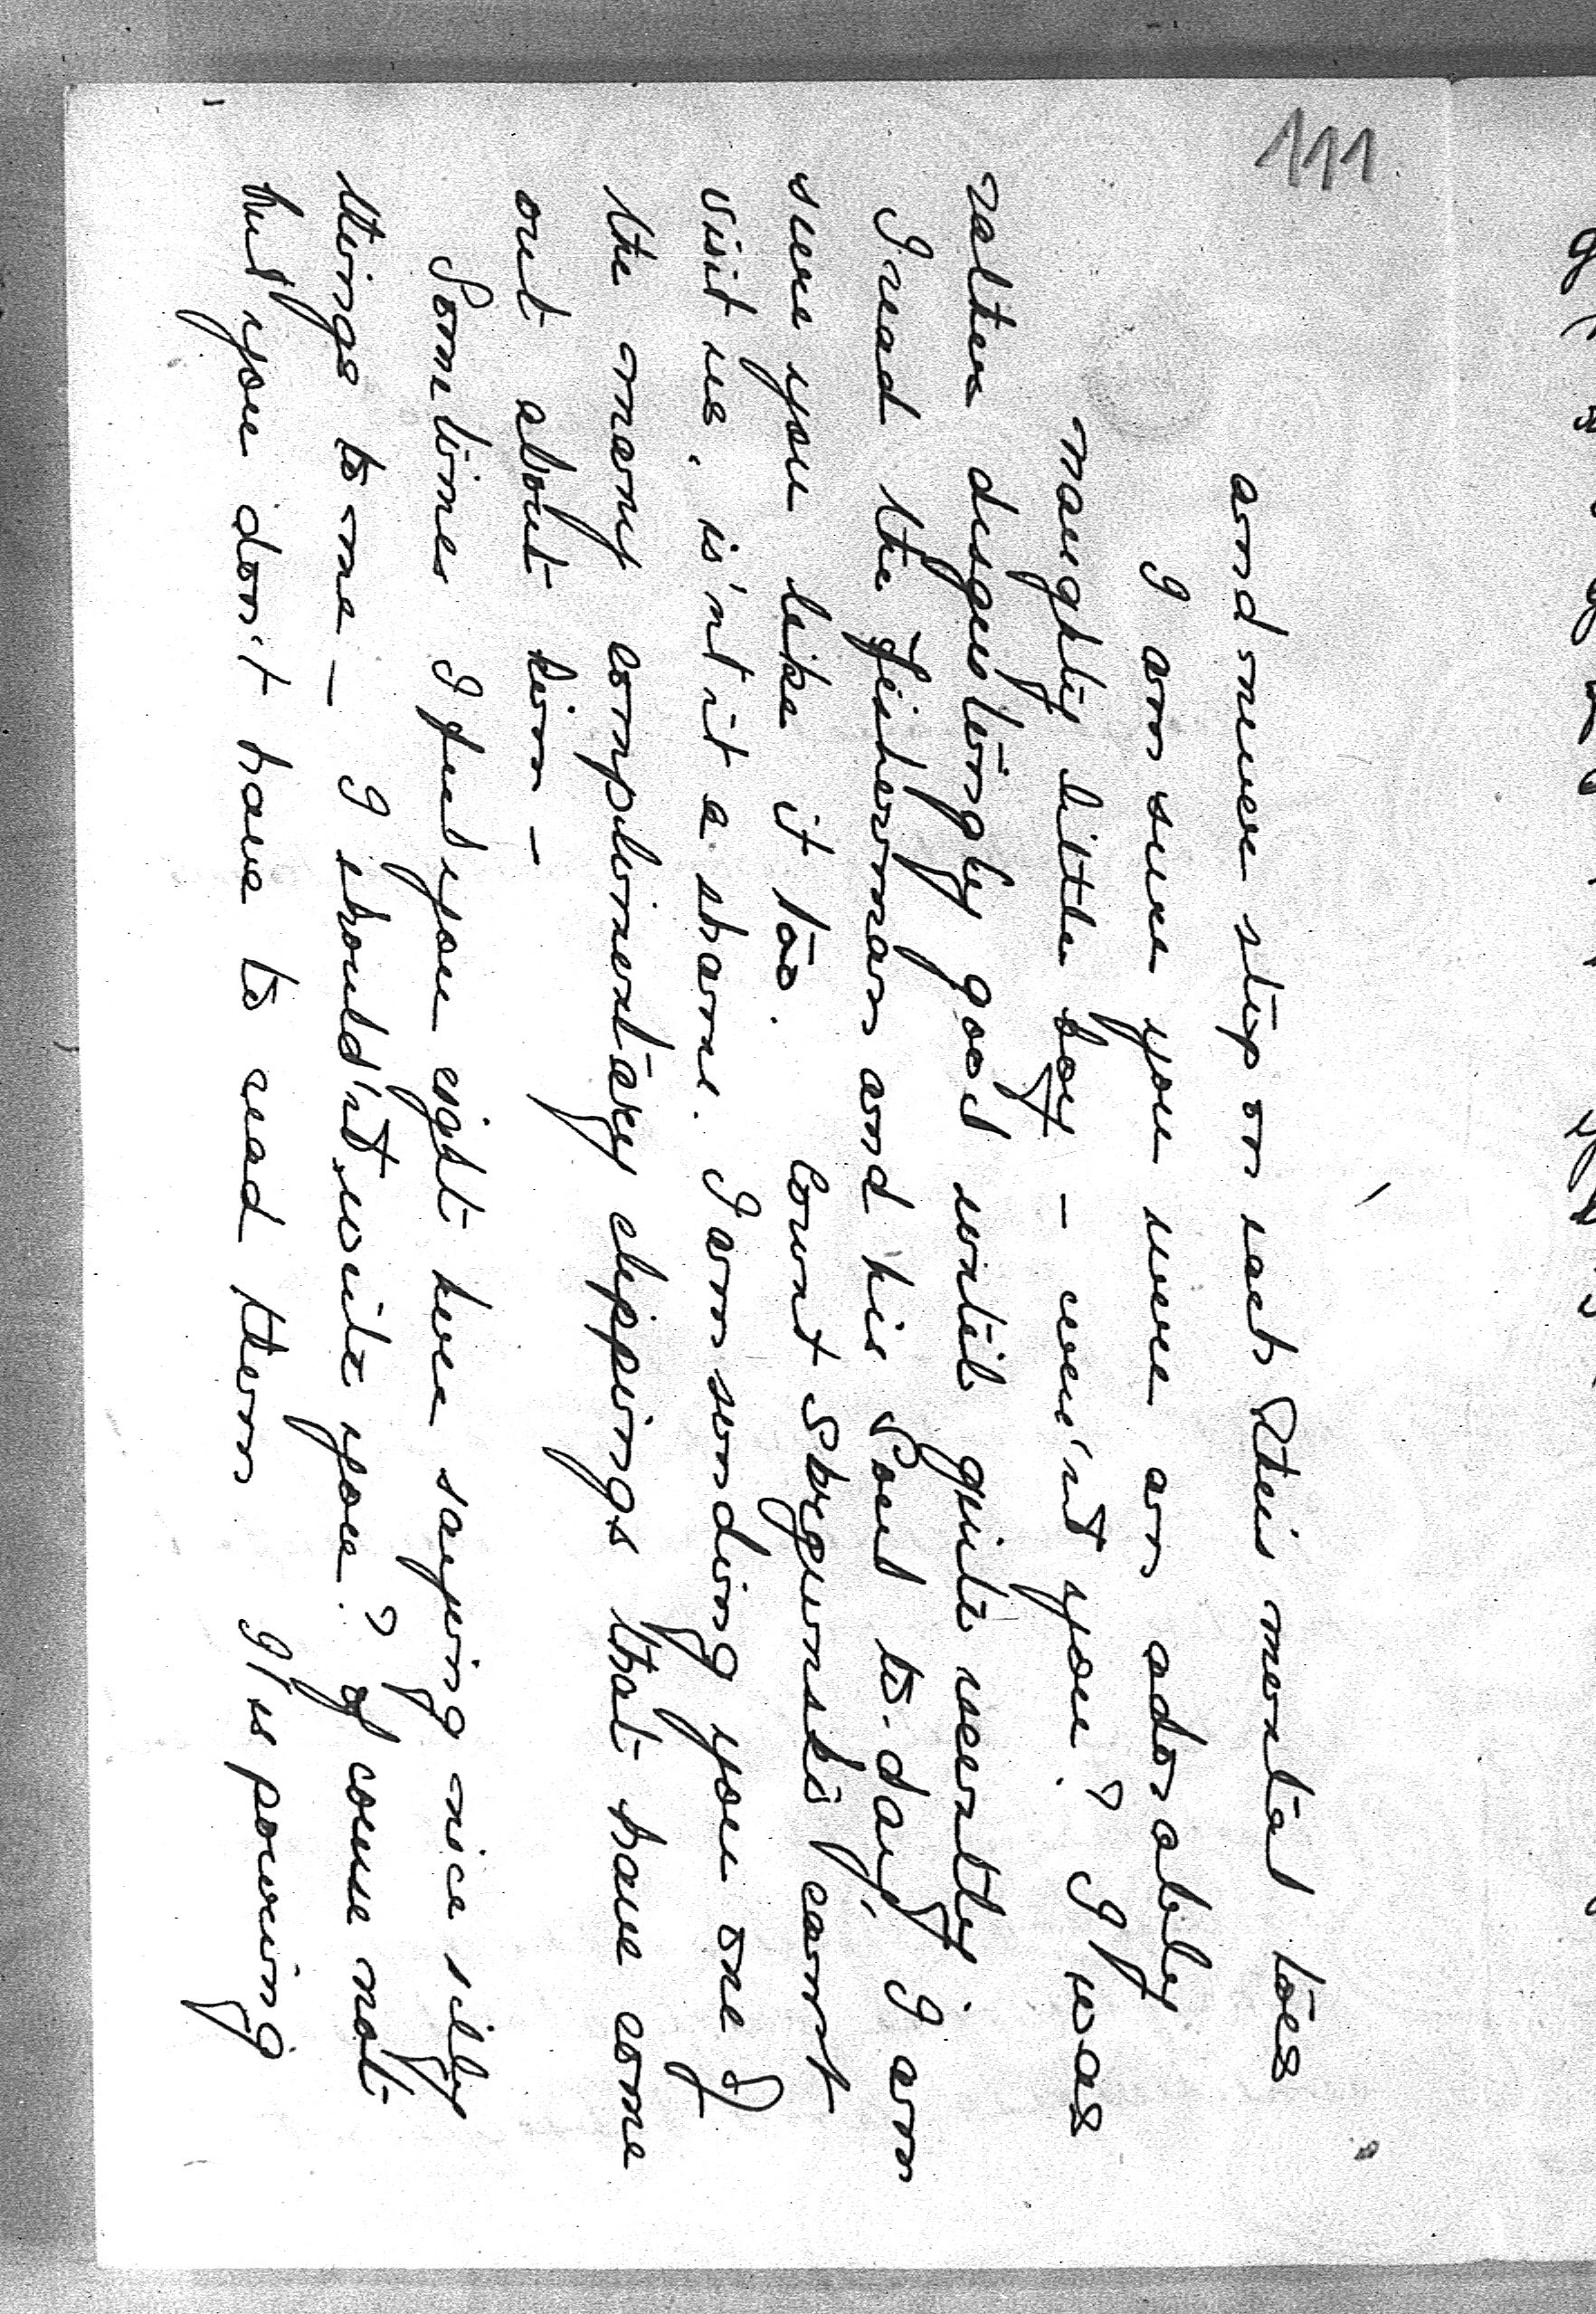 111
and never step on each other's mental toes
I am sure you were an adorably
naughty little boy - were'nt you? I was
rather disgustingly good until quite recently.
I read the Fisherman and his Soul to-day, I am
sure you like it too. Count Skrzynski can't
visit us, is'nt it a shame. I am sending you one of
the many complimentary clippings that have come
out about him -
Sometimes I feel you right here saying nice silly
things to me - I should'nt write you? of course not
but you don't have to read them I is pouring